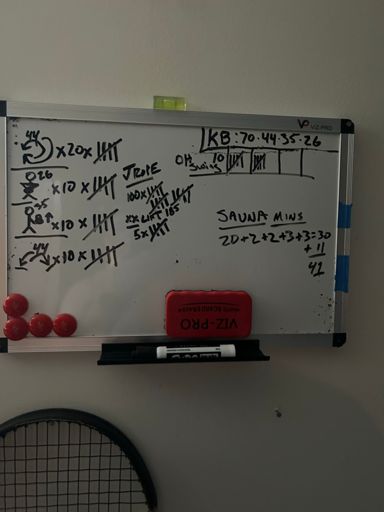 VIZ-PRO
KB: 70·44·35·26
44
x20x
26
x10x
35
x10x
44
x10x
JROPE
100x
LIFT 185
5x
OH 10
Swing
SAUNA MINS
20+2+2+3+3=30
+11
41
VIZ-PRO